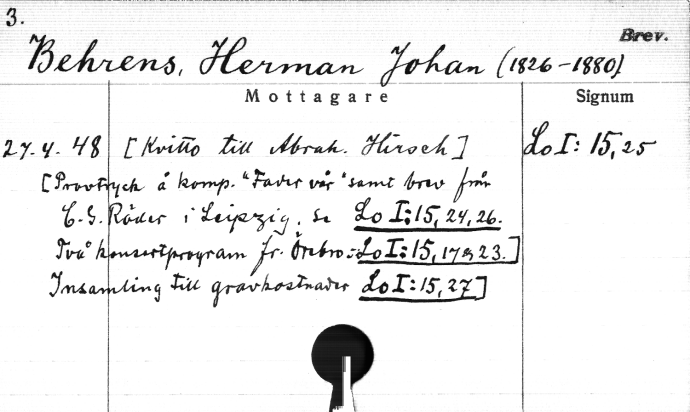 3.
Brev.
Behrens, Herman Johan (1826-1880)
Mottagare Signum
27.4.48 [Kvitto till Abrah. Hirsch] Lo I: 15,25
[Provtryck å komp. "Fader vår" samt brev från
C.G. Röder i Leipzig. Se Lo I:15,24,26.
Två konsertprogram fr. Örebro: Lo I:15,17 o 23.]
Insamling till gravkostnader Lo I:15,27]